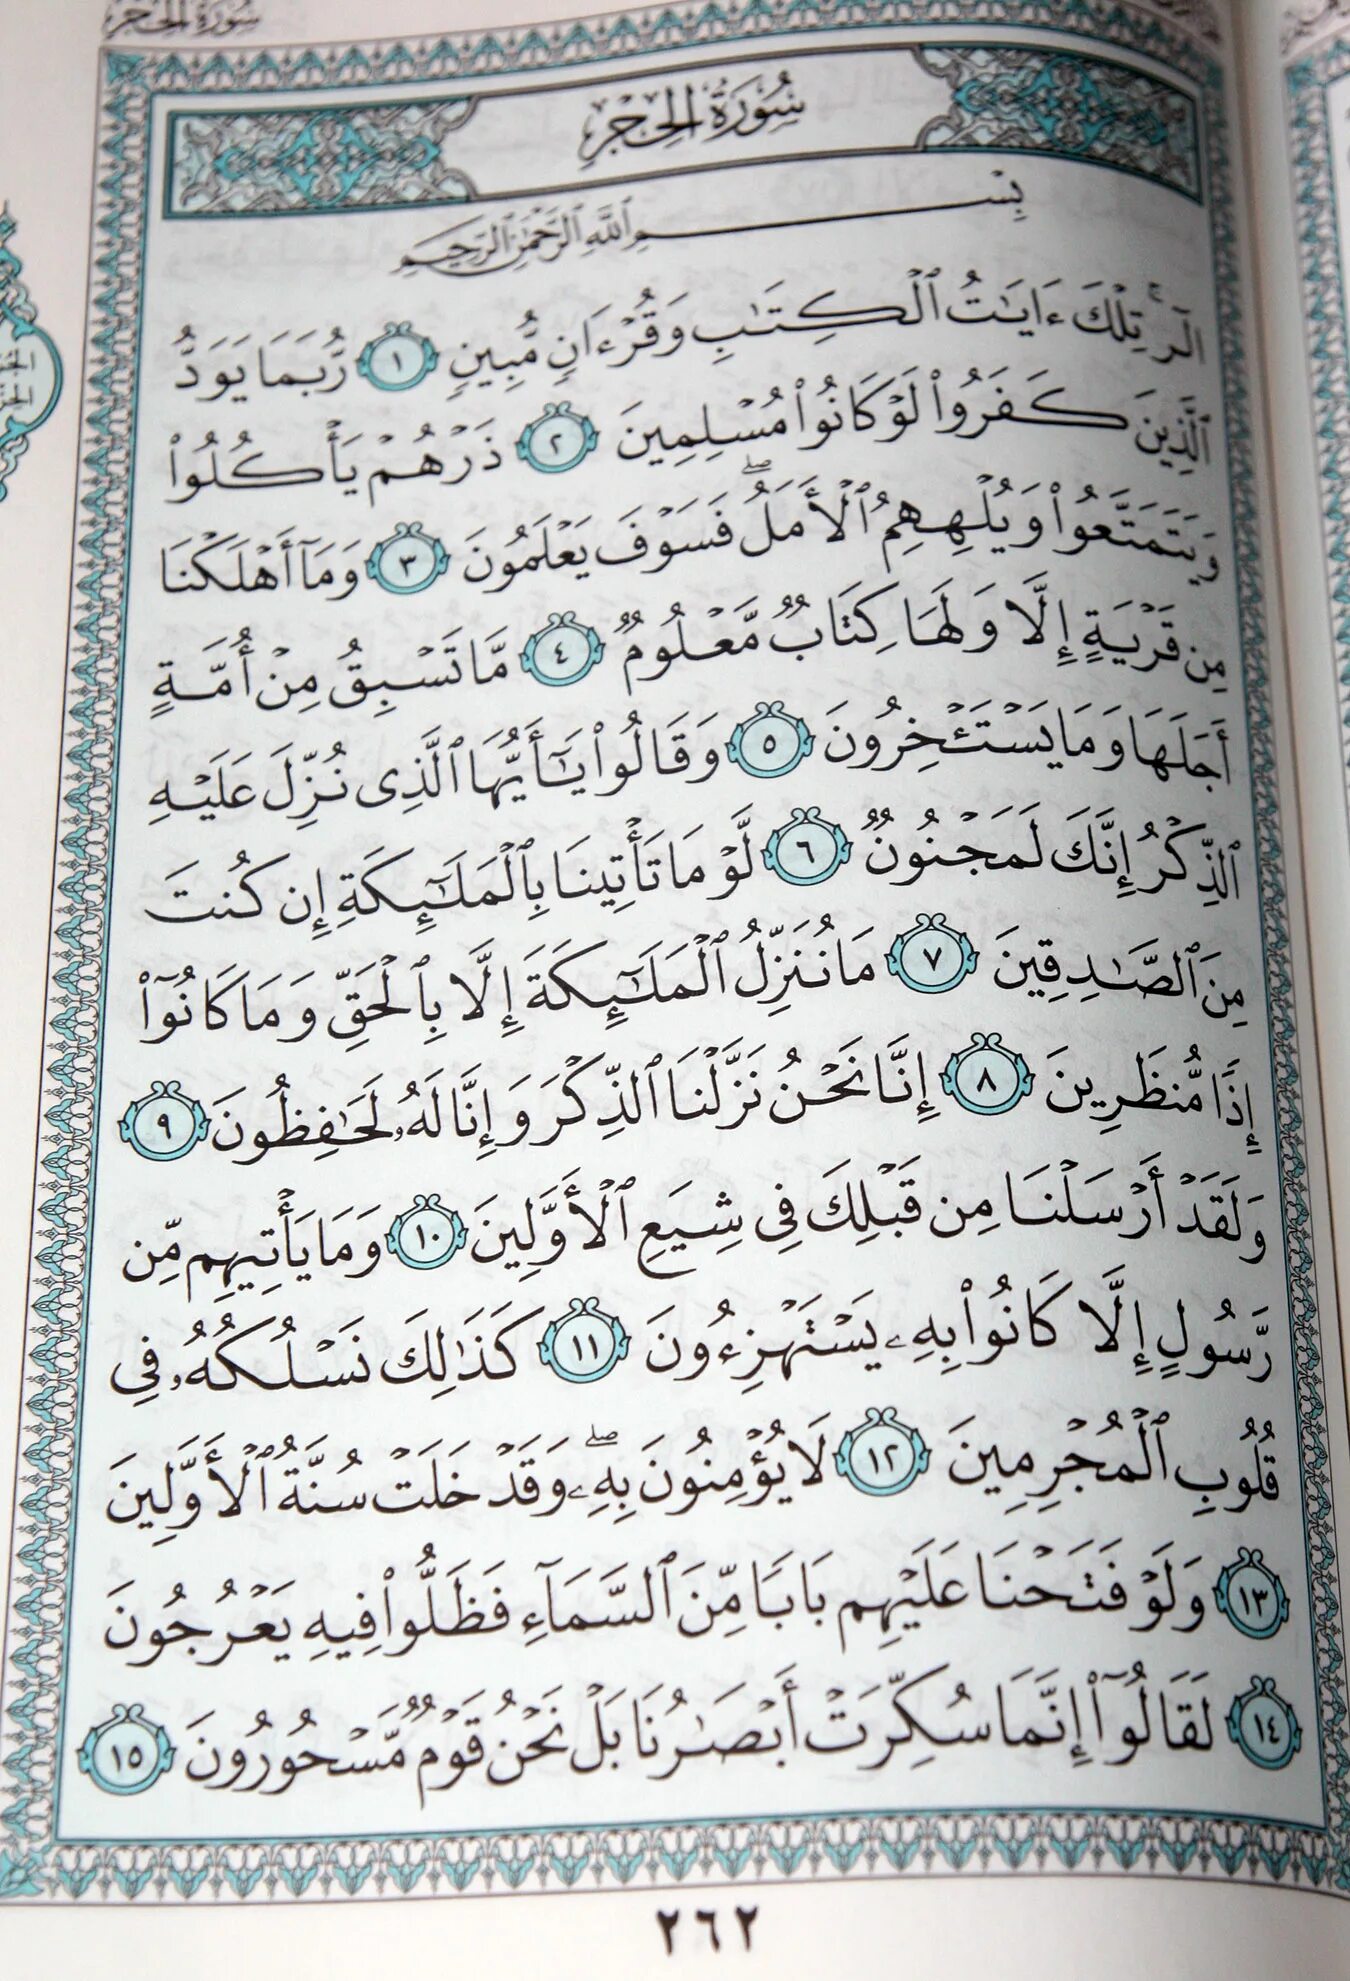 سُورَةُ الحِجْرِ
سُورَةُ الحِجْرِ
بِسْمِ ٱللَّهِ ٱلرَّحْمَٰنِ ٱلرَّحِيمِ
الٓر ۚ تِلْكَ ءَايَٰتُ ٱلْكِتَٰبِ وَقُرْءَانٍ مُّبِينٍ ١ رُّبَمَا يَوَدُّ
ٱلَّذِينَ كَفَرُوا۟ لَوْ كَانُوا۟ مُسْلِمِينَ ٢ ذَرْهُمْ يَأْكُلُوا۟
وَيَتَمَتَّعُوا۟ وَيُلْهِهِمُ ٱلْأَمَلُ ۖ فَسَوْفَ يَعْلَمُونَ ٣ وَمَآ أَهْلَكْنَا
مِن قَرْيَةٍ إِلَّا وَلَهَا كِتَابٌ مَّعْلُومٌ ٤ مَّا تَسْبِقُ مِنْ أُمَّةٍ
أَجَلَهَا وَمَا يَسْتَـْٔخِرُونَ ٥ وَقَالُوا۟ يَٰٓأَيُّهَا ٱلَّذِى نُزِّلَ عَلَيْهِ
ٱلذِّكْرُ إِنَّكَ لَمَجْنُونٌ ٦ لَّوْ مَا تَأْتِينَا بِٱلْمَلَٰٓئِكَةِ إِن كُنتَ
مِنَ ٱلصَّٰدِقِينَ ٧ مَا نُنَزِّلُ ٱلْمَلَٰٓئِكَةَ إِلَّا بِٱلْحَقِّ وَمَا كَانُوٓا۟
إِذًا مُّنظَرِينَ ٨ إِنَّا نَحْنُ نَزَّلْنَا ٱلذِّكْرَ وَإِنَّا لَهُۥ لَحَٰفِظُونَ ٩
وَلَقَدْ أَرْسَلْنَا مِن قَبْلِكَ فِى شِيَعِ ٱلْأَوَّلِينَ ١٠ وَمَا يَأْتِيهِم مِّن
رَّسُولٍ إِلَّا كَانُوا۟ بِهِۦ يَسْتَهْزِءُونَ ١١ كَذَٰلِكَ نَسْلُكُهُۥ فِى
قُلُوبِ ٱلْمُجْرِمِينَ ١٢ لَا يُؤْمِنُونَ بِهِۦ ۖ وَقَدْ خَلَتْ سُنَّةُ ٱلْأَوَّلِينَ
١٣ وَلَوْ فَتَحْنَا عَلَيْهِم بَابًا مِّنَ ٱلسَّمَآءِ فَظَلُّوا۟ فِيهِ يَعْرُجُونَ
١٤ لَقَالُوٓا۟ إِنَّمَا سُكِّرَتْ أَبْصَٰرُنَا بَلْ نَحْنُ قَوْمٌ مَّسْحُورُونَ ١٥
٢٦٢